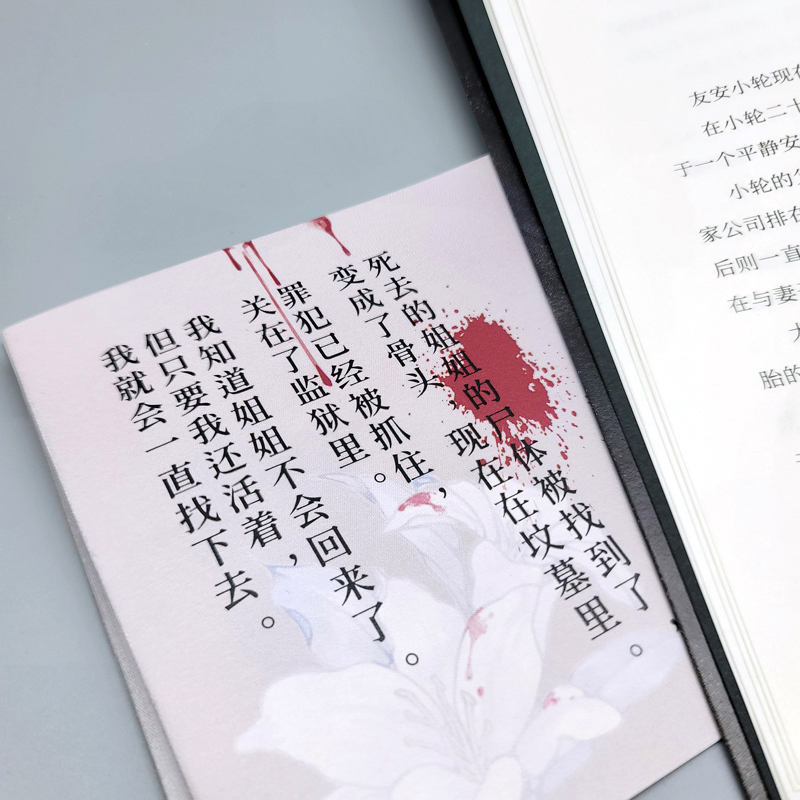 死去的姐姐的尸体被找到了
变成了骨头，现在在坟墓里。
罪犯已经被抓住，
关在了监狱里。
我知道姐姐不会回来了。
但只要我还活着，
我就会一直找下去。
友安小轮现在
在小轮二十
于一个平静安
小轮的父
家公司排在
后则一直
在与妻
胎的